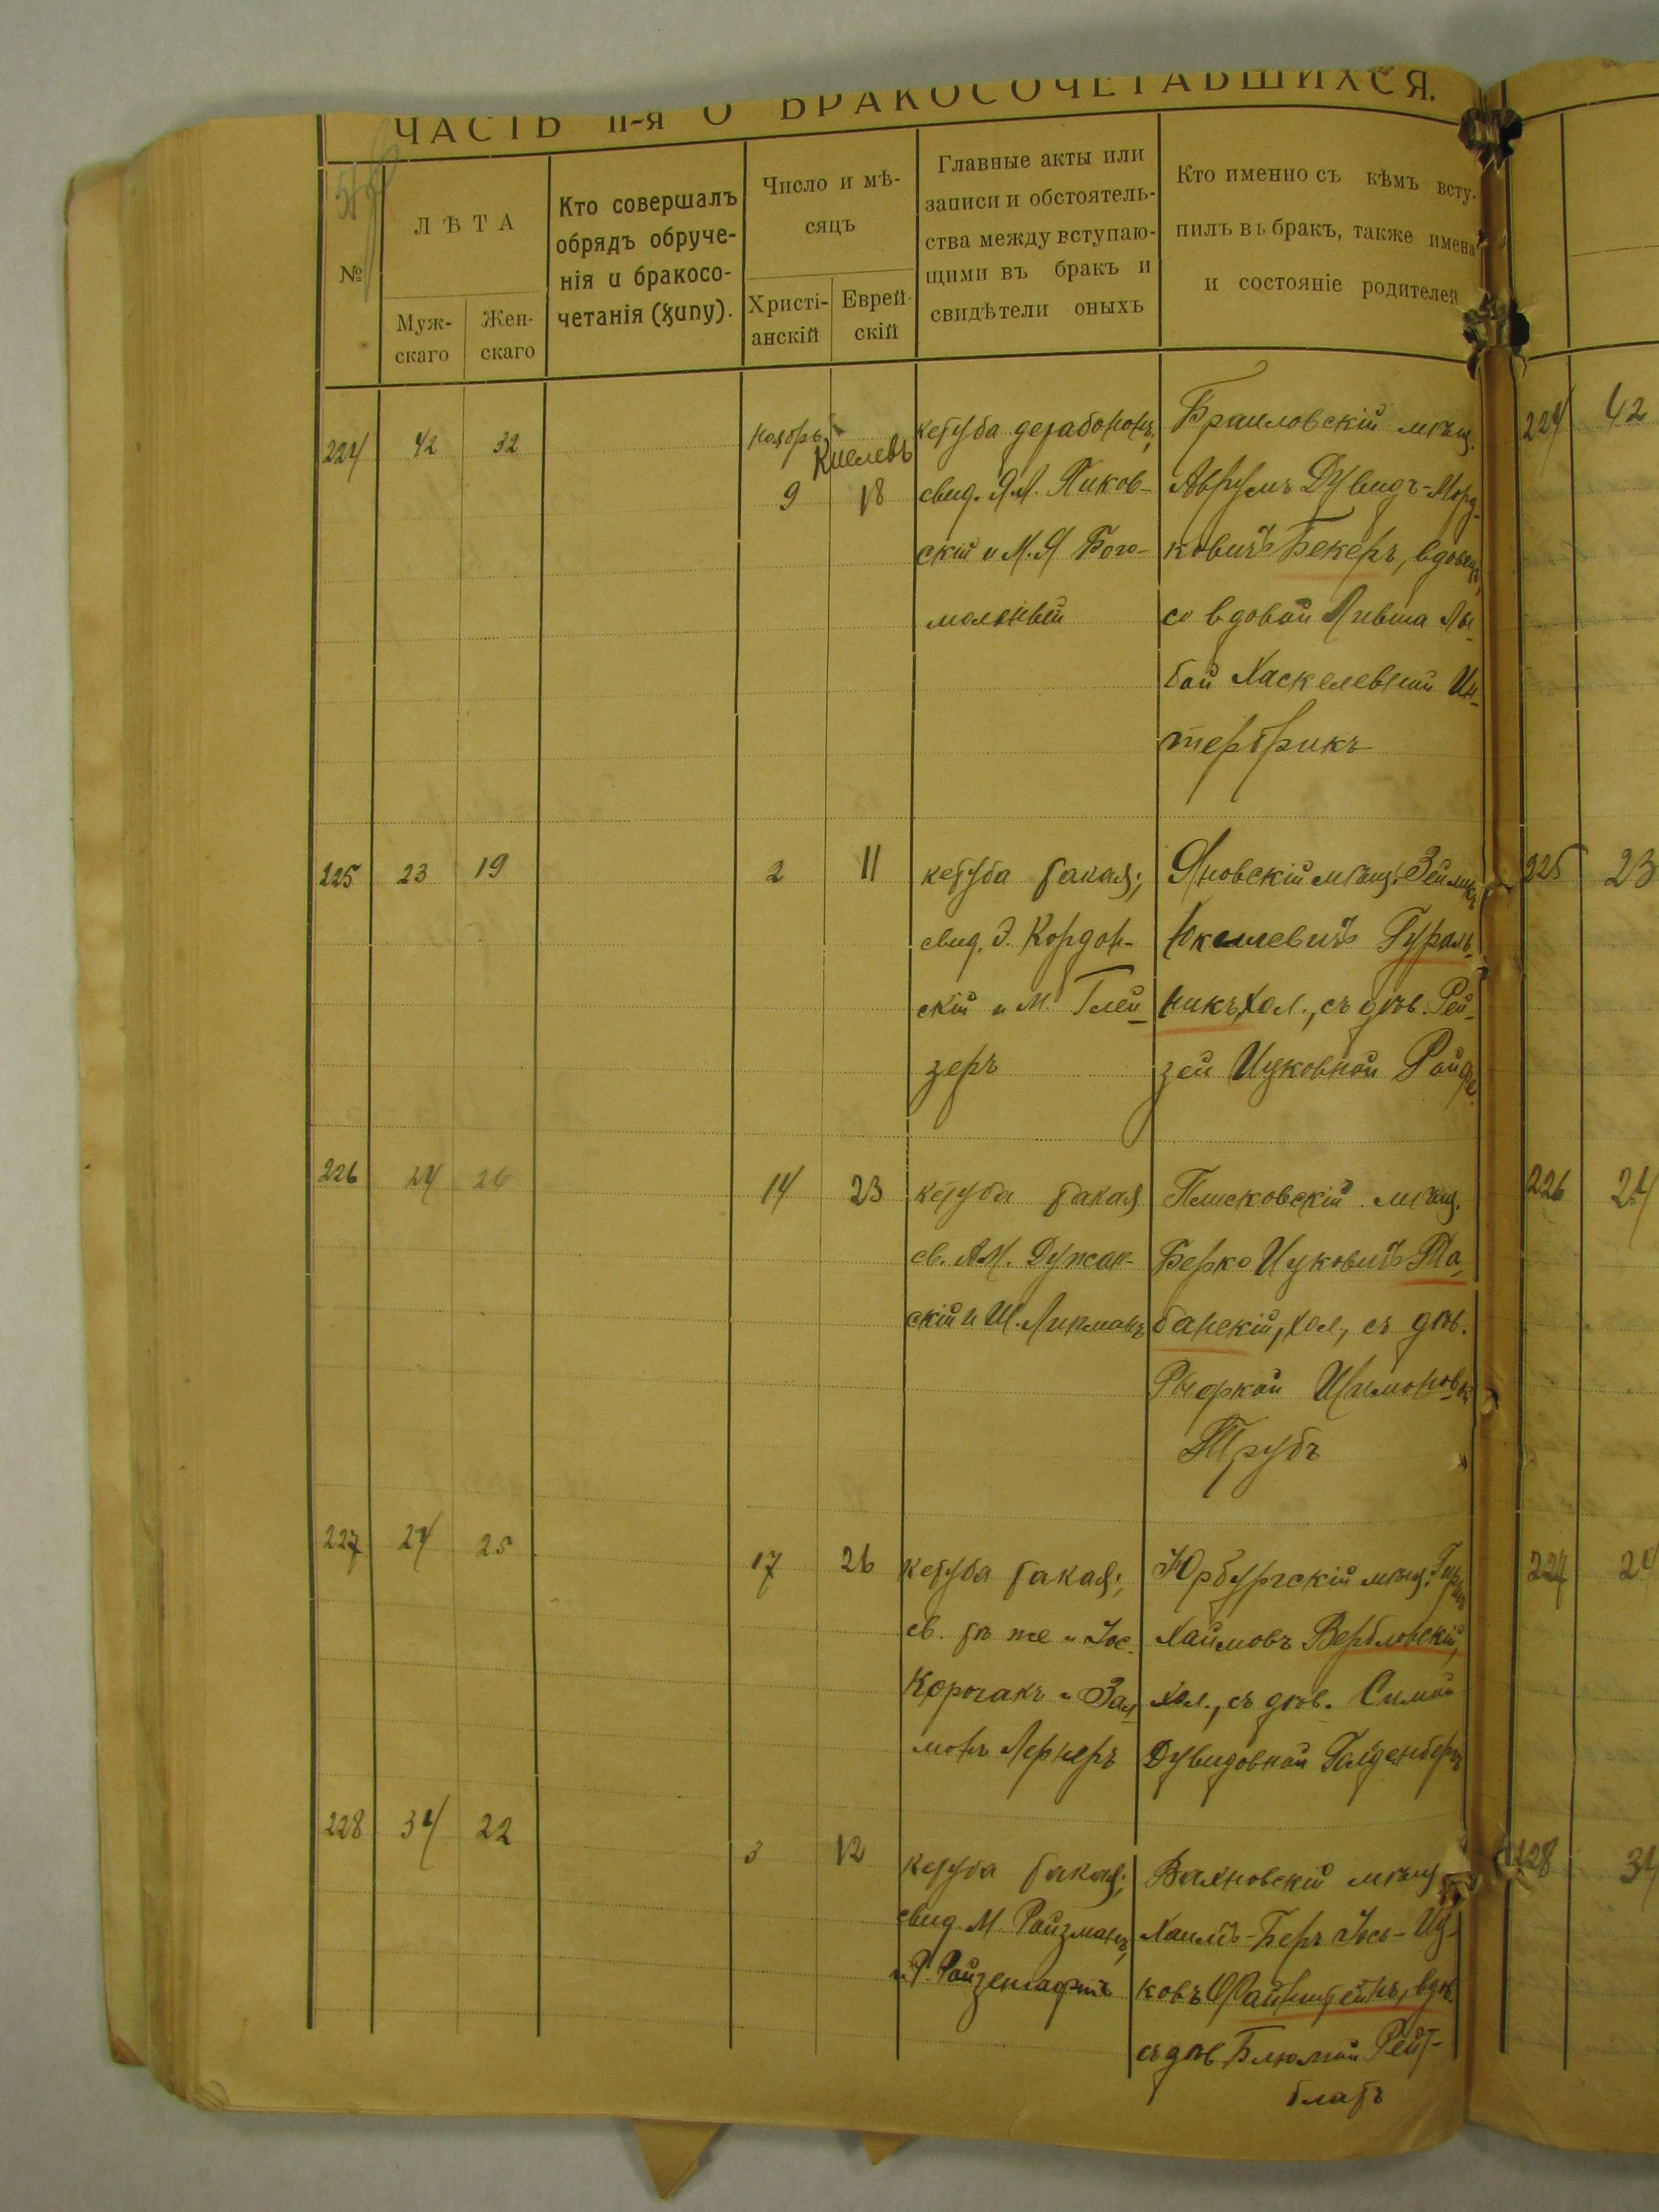 ЧАСТЬ II-я О БРАКОСОЧЕТАВШИХСЯ.
№
ЛѢТА
Муж-
скаго
Жен-
скаго
Кто совершалъ
обрядъ обруче-
нія и бракосо-
четанія (хупу).
Число и мѣ-
сяцъ
Христі-
анскій
Еврей-
скій
Главные акты или
записи и обстоятель-
ства между вступаю-
щими въ бракъ и
свидѣтели оныхъ
Кто именно съ кѣмъ всту-
пилъ въ бракъ, также имена
и состояніе родителей
224 42 32
Ноябрь Кислевъ
9 18
кетуба дерабононъ,
свид. Я.М. Пиков-
скій и М.Я Бого-
мольный
Браиловскій мѣщ.
Аврумъ Дувидъ-Морд-
ковичъ Бекеръ, вдовецъ,
со вдовой Ливша Ли-
бой Хаскелевной Ин-
тербрикъ
225 23 19
2 11
кетуба такая;
свид. Э. Кордон-
скій и М. Глей-
зеръ
Яновскій мѣщ. Зейликъ
Икелевичъ Гураль-
никъ, хол., съ дѣв. Рей-
зей Ицковной Ройф
226 24 26
14 23
кетуба такая
св. А.М. Дужан-
скій и Ш. Липманъ
Плисковскій мѣщ.
Берко Ицковичъ Та-
банскій, хол., съ дѣв.
Рыфкой Шимоновн
Трубъ
227 24 25
17 26
кетуба такая;
св. тѣ же и Іос.
Корчакъ и Зал-
монъ Лернеръ
Юрбургскій мѣщ. Гиршъ
Хаимовъ Вербловскій,
хол., съ дѣв. Симой
Дувидовной Гольденбергъ
228 34 22
3 12
кетуба такая;
свид. М Ройзманъ
и Р. Райзенгафтъ
Вахновскій мѣщ
Хаимъ-Беръ Іось-Иц-
ковъ Файнштейнъ, вдов.
съ дѣв Блюмой Рейт-
блатъ
224 42
225 23
226 24
227 24
228 34